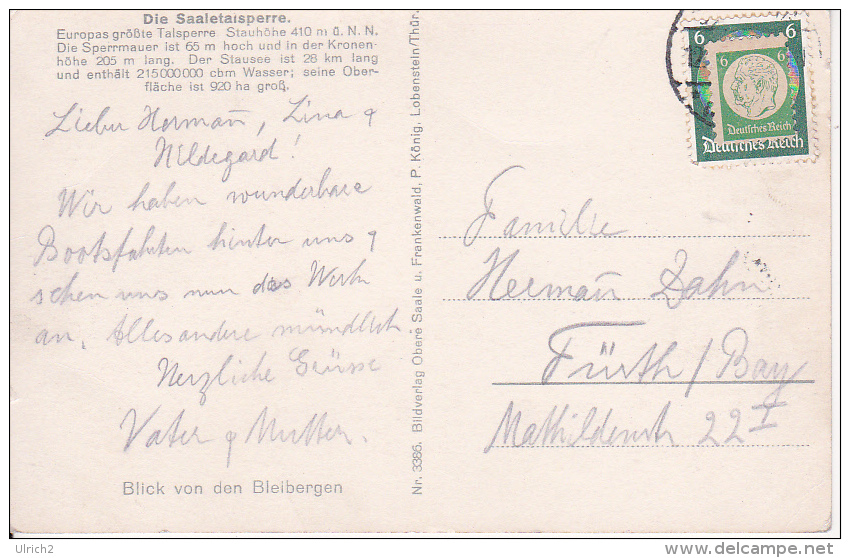 Die Saaletalsperre.
Europas größte Talsperre Stauhöhe 410 m ü. N. N.
Die Sperrmauer ist 65 m hoch und in der Kronen-
höhe 205 m lang. Der Stausee ist 28 km lang
und enthält 215000000 cbm Wasser; seine Ober-
fläche ist 920 ha groß.
Lieber Hermann, Lina &
Hildegard!
Wir haben wunderbare
Bootsfahrten hinter uns &
sehen uns nun das Werk
an. Alles andere mündlich
Herzliche Grüsse
Vater & Mutter.
Blick von den Bleibergen
Nr. 3386. Bildverlag Obere Saale u. Frankenwald, P. König, Lobenstein/Thür.
6 6
6 6
Deutsches Reich
Deutsches Reich
Familie
Hermann Dahn
Fürth/Bay
Mathildenstr 22 I
Ulrich2
delcampe.net